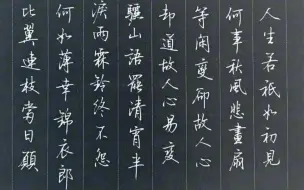 人生若祇如初見
何事秋風悲畫扇
等閑變卻故人心
却道故人心易變
驪山語罷清宵半
淚雨霖鈴終不怨
何如薄幸錦衣郎
比翼連枝當日願